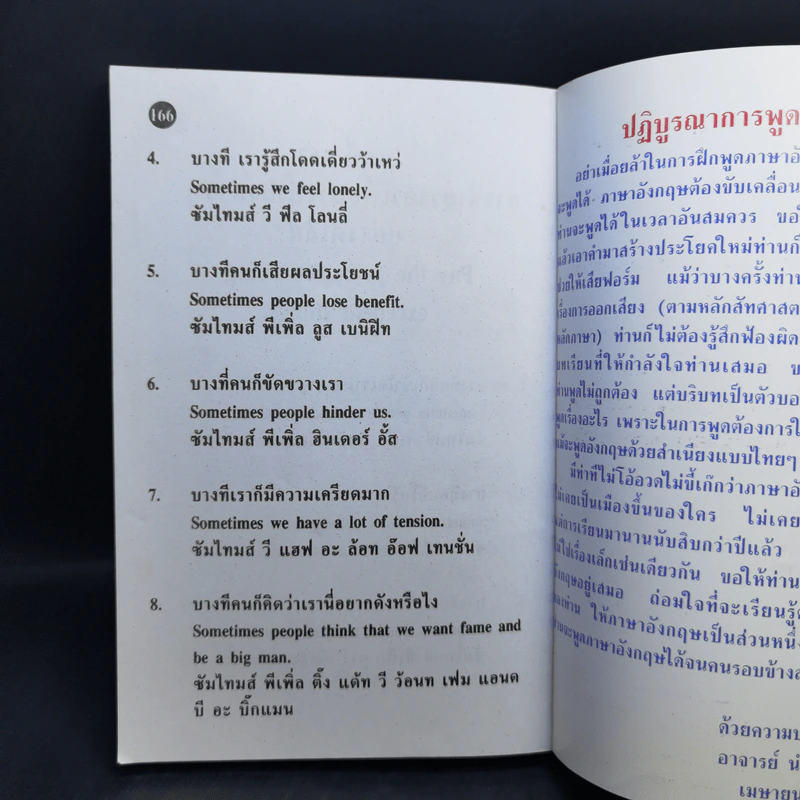 166
4. บางที เรารู้สึกโดดเดี่ยวว้าเหว่
Sometimes we feel lonely.
ซัมไทมส์ วี ฟีล โลนลี่
5. บางทีคนก็เสียผลประโยชน์
Sometimes people lose benefit.
ซัมไทมส์ พีเพิ่ล ลูส เบนิฝีท
6. บางที่คนก็ขัดขวางเรา
Sometimes people hinder us.
ซัมไทมส์ พีเพิ่ล ฮินเดอร์ อั้ส
7. บางทีเราก็มีความเครียดมาก
Sometimes we have a lot of tension.
ซัมไทมส์ วี แฮฟ อะ ล้อท อ๊อฟ เทนชั่น
8. บางทีคนก็คิดว่าเรานี่อยากดังหรือไง
Sometimes people think that we want fame and
be a big man.
ซัมไทมส์ พีเพิ่ล ติ๊ง แด้ท วี ว้อนท เฟม แอนด
บี อะ บิ๊กแมน
ปฏิบูรณาการพูด
อย่าเมื่อยล้าในการฝึกพูดภาษาอั
จะพูดได้ ภาษาอังกฤษต้องขับเคลื่อน
ท่านจะพูดได้ในเวลาอันสมควร ขอใ
แล้วเอาคำมาสร้างประโยคใหม่ท่านก็
ช่วยให้เสียฟอร์ม แม้ว่าบางครั้งท่าน
เรื่องการออกเสียง (ตามหลักสัทศาสต
หลักภาษา) ท่านก็ไม่ต้องรู้สึกฟ้องผิด
บทเรียนที่ให้กำลังใจท่านเสมอ ข
ท่านพูดไม่ถูกต้อง แต่บริบทเป็นตัวบอ
พูดเรื่องอะไร เพราะในการพูดต้องการใ
แม้จะพูดอังกฤษด้วยสำเนียงแบบไทยๆ
มีท่าทีไม่โอ้อวดไม่ขี้เก๊กว่าภาษาอั
ไม่เคยเป็นเมืองขึ้นของใคร ไม่เคย
แต่การเรียนมานานนับสิบกว่าปีแล้ว
ไม่ใช่เรื่องเล็กเช่นเดียวกัน ขอให้ท่าน
อังกฤษอยู่เสมอ ถ่อมใจที่จะเรียนรู้
ของท่าน ให้ภาษาอังกฤษเป็นส่วนหนึ่
ท่านจะพูดภาษาอังกฤษได้จนคนรอบข้าง
ด้วยความป
อาจารย์ น
เมษายน